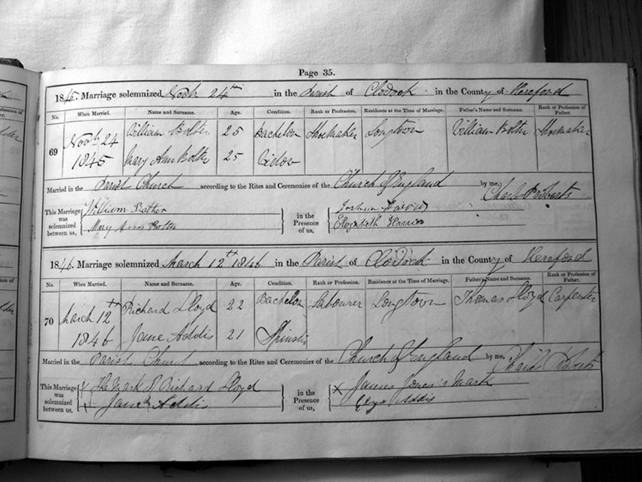 Page 35.
1845. Marriage solemnized Novbr 24th in the Parish of Clodock in the County of Hereford
No. When Married. Name and Surname. Age. Condition. Rank or Profession. Residence at the Time of Marriage. Father's Name and Surname. Rank or Profession of Father.
69 Novbr 24 William 25 Bachelor Shoemaker Longtown William Shoemaker
1845 Mary Ann 25 Widow
Married in the Parish Church according to the Rites and Ceremonies of the Church of England by me,
This Marriage was solemnized between us, William
Mary Ann
in the Presence of us,
Elizabeth
1846. Marriage solemnized March 12th 1846 in the Parish of Clodock in the County of Hereford
No. When Married. Name and Surname. Age. Condition. Rank or Profession. Residence at the Time of Marriage. Father's Name and Surname. Rank or Profession of Father.
70 March 12th Richard Lloyd 22 Bachelor Labourer Longtown Thomas Lloyd Carpenter
1846 Jane Addis 21
Married in the Parish Church according to the Rites and Ceremonies of the Church of England by me,
This Marriage was solemnized between us, The Mark of Richard Lloyd
Jane Addis
in the Presence of us, X James Jones's Mark
Addis